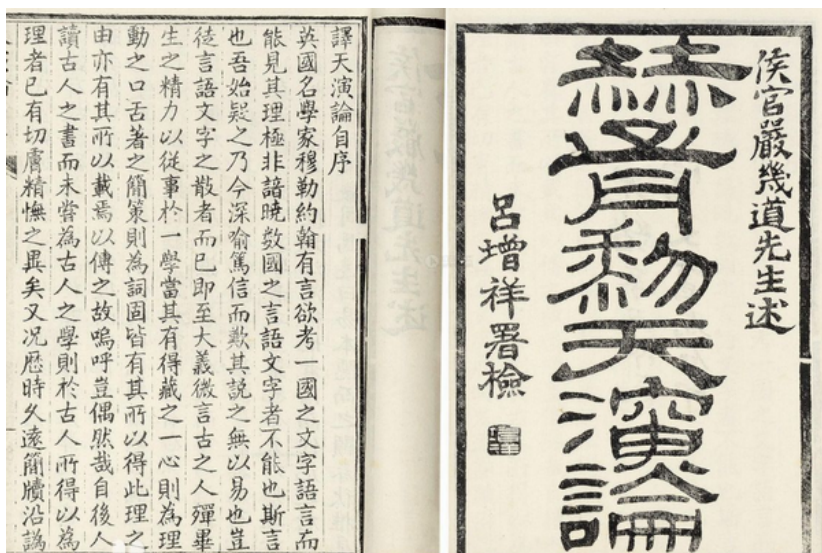 侯官嚴幾道先生述
赫胥黎天演論
呂增祥署檢
譯天演論自序
英國名學家穆勒約翰有言欲考一國之文字語言而
能見其理極非諳曉數國之言語文字者不能也斯言
也吾始疑之乃今深喻篤信而歎其說之無以易也豈
徒言語文字之散者而已即至大義微言古之人殫畢
生之精力以從事於一學當其有得藏之一心則為理
動之口舌著之簡策則為詞固皆有其所以得此理之
由亦有其所以載焉以傳之故嗚呼豈偶然哉自後人
讀古人之書而未嘗為古人之學則於古人所得以為
理者已有切膚精憮之異矣又況歷時久遠簡牘沿譌